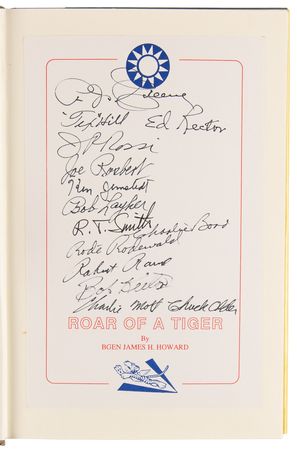 "Tex" Hill
Ed Rector
J P Rossi
Joe Rosbert
Ken Jernstedt
Bob Layher
R. T. Smith
Charlie Bond
Rode Rodewald
Robert
Bob
Charlie Mott
Chuck Older
ROAR OF A TIGER
By
BGEN JAMES H. HOWARD